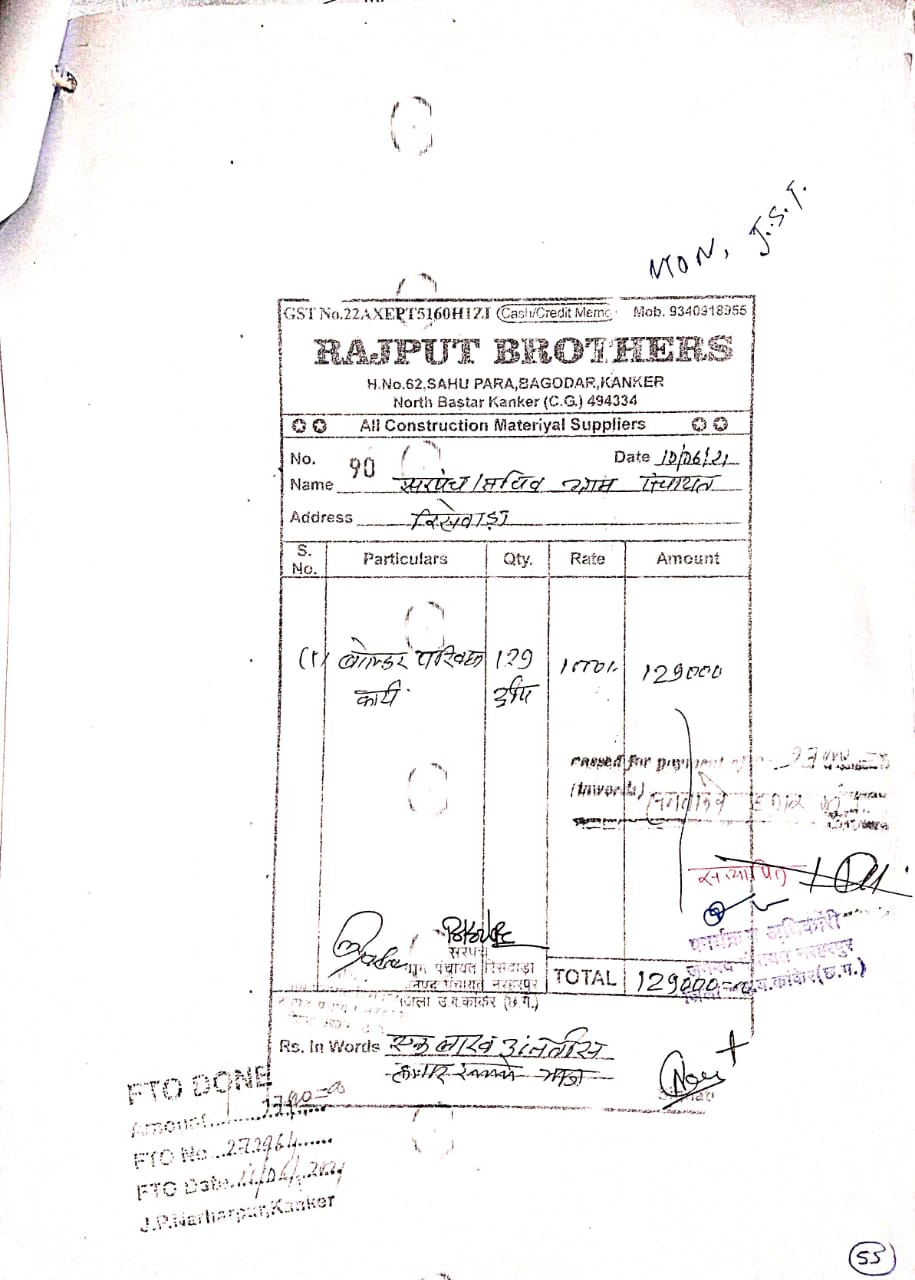 NON, G.S.T.
GST No.22AXEPT5160H1ZI Cash/Credit Memo Mob. 9340918955
RAJPUT BROTHERS
H.No.62,SAHU PARA,BAGODAR,KANKER
North Bastar Kanker (C.G.) 494334
All Construction Materiyal Suppliers
No. 90 Date 10/06/21
Name सरपंच / सचिव ग्राम पंचायत
Address रिसेवाड़ा
S. No. Particulars Qty. Rate Amount
(1) बोल्डर परिवहन 129 1000/- 129000
कार्य
passed for payment
(Inwords)
सत्यापित
कार्यक्रम अधिकारी
जनपद पंचायत नरहरपुर
जिला उ.ब.कांकेर(छ.ग.)
सरपंच
ग्राम पंचायत रिसेवाड़ा
जनपद पंचायत नरहरपुर
जिला उ.ब.कांकेर (छ.ग.)
TOTAL 129000=00
Rs. In Words एक लाख उनतीस
हजार रूपये मात्र
FTO DONE
Amount
FTO No. 272964
FTO Date 11/06/2021
J.P.Narharpur,Kanker
55